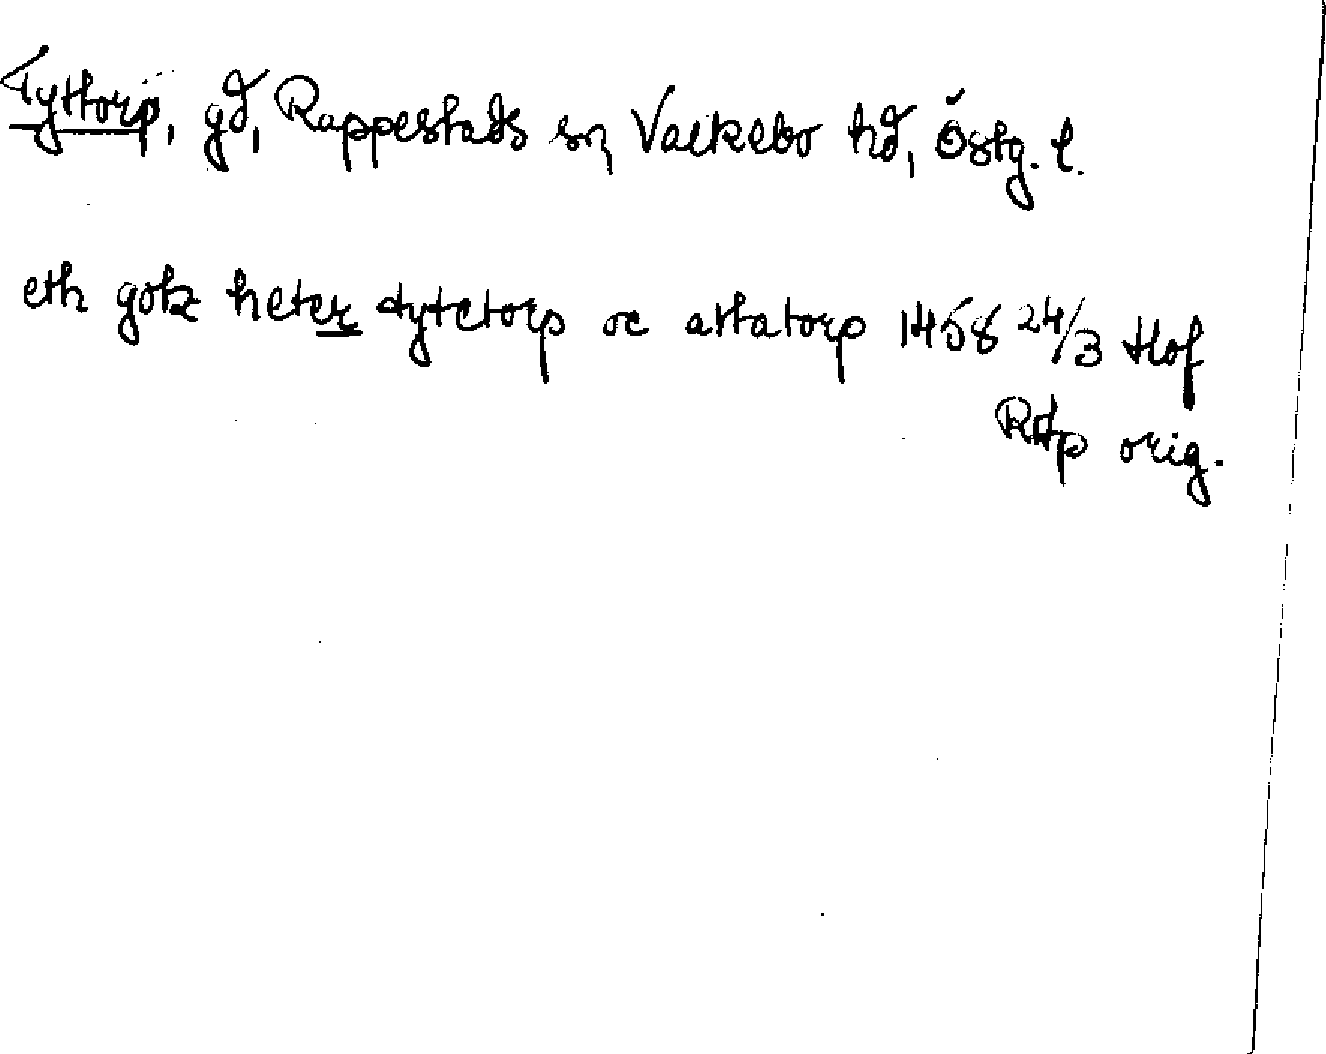 Tyttorp, gd, Rappestads sn, Valkebo hd, Östg. l.
eth gotz heter tytetorp oc attatorp 1458 24/3 Hof
Rdp orig.